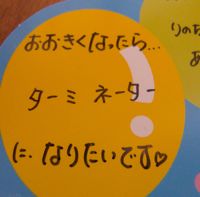 おおきくなったら...
ターミネーター
に。なりたいです♡
りのち
あ